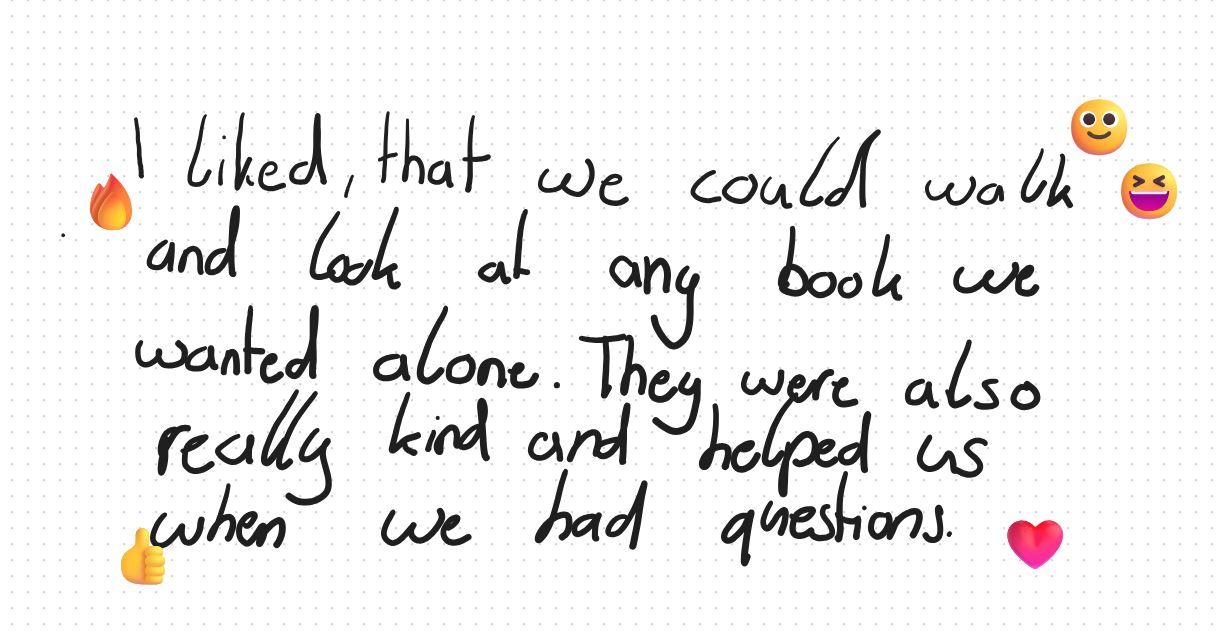 I liked, that we could walk
and look at any book we
wanted alone. They were also
really kind and helped us
when we had questions.